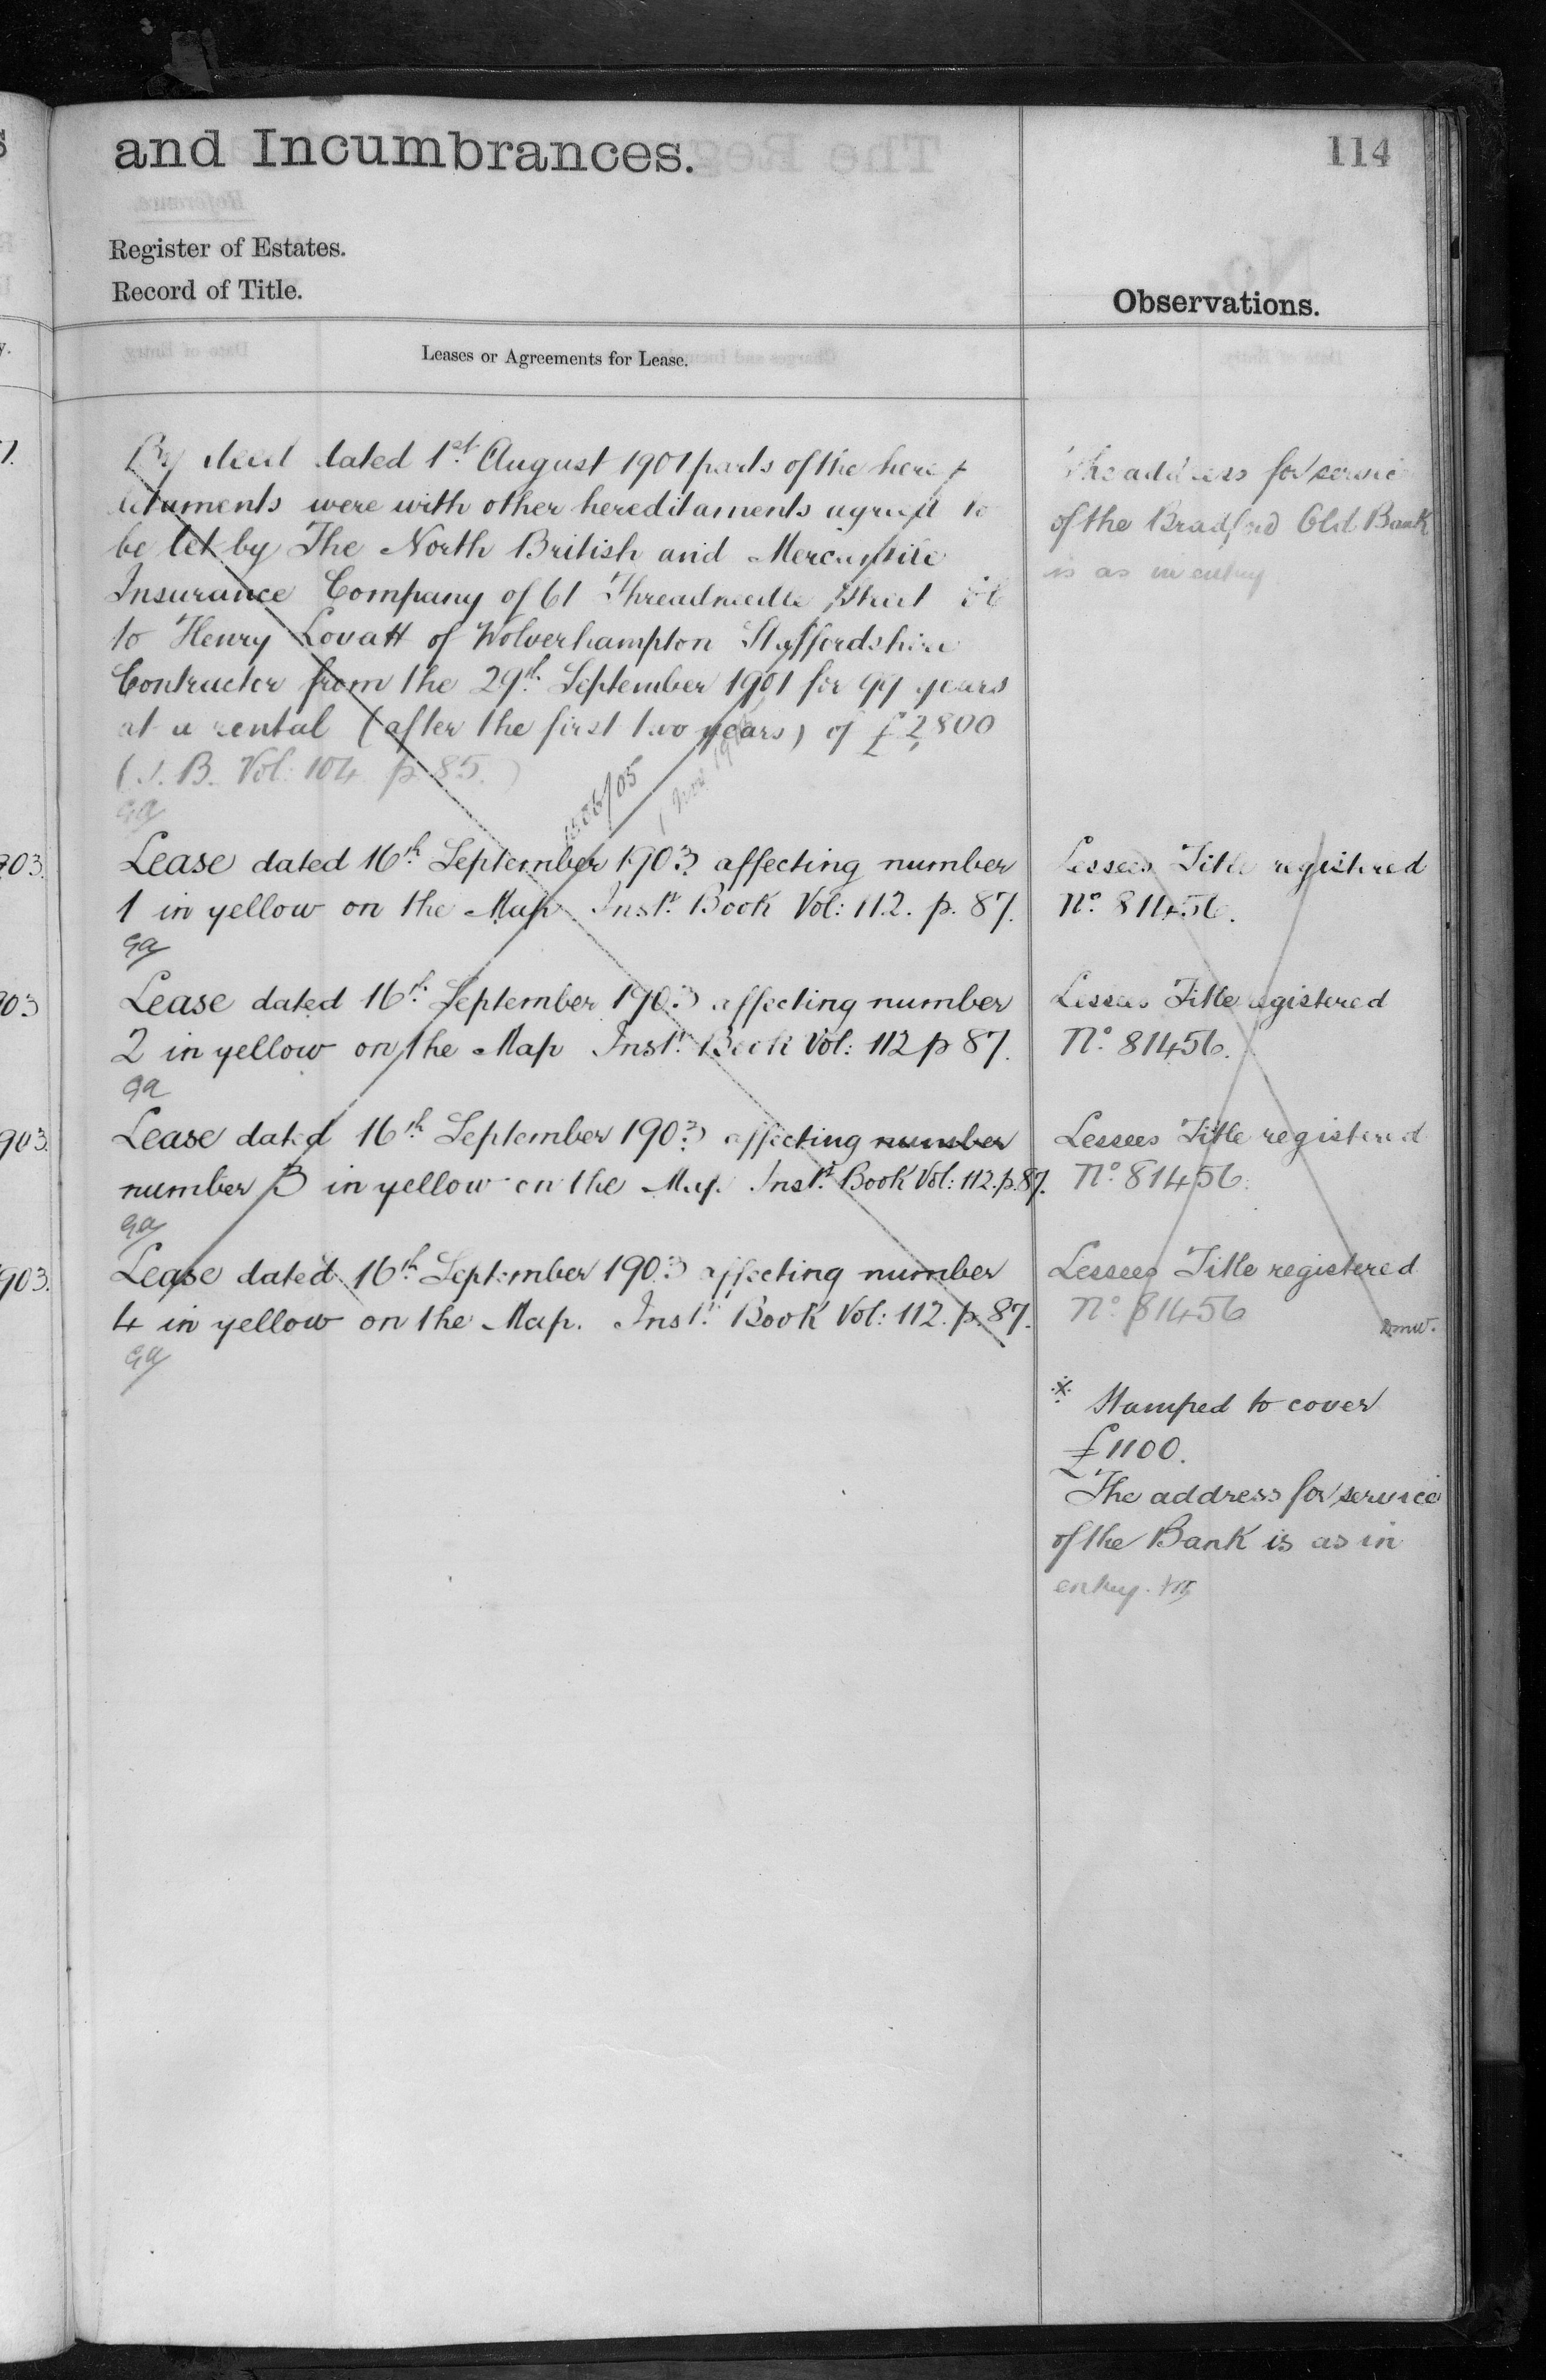 and Incumbrances.
114
Register of Estates.
Record of Title.
Observations.
Leases or Agreements for Lease.
By deed dated 1st August 1901 parts of the here
ditaments were with other hereditaments agreed to
be let by The North British and Mercantile
Insurance Company of 61 Threadneedle Street
to Henry Lovatt of Wolverhampton Staffordshire
Contractor from the 29th September 1901 for 99 years
at a rental (after the first two years) of £2,800
(I.B. Vol: 104 p. 85.)
The address for service
of the Bradford Old Bank
is as in entry
/05
Lease dated 16th September 1903 affecting number
1 in yellow on the Map Inst. Book Vol: 112. p. 87.
Lessees Title registered
No. 81456.
Lease dated 16th September 1903 affecting number
2 in yellow on the Map Inst. Book Vol: 112 p 87.
Lessees Title registered
No. 81456.
Lease dated 16th September 1903 affecting number
number 3 in yellow on the Map. Inst. Book Vol: 112. p. 87.
Lessees Title registered
No. 81456.
Lease dated 16th September 1903 affecting number
4 in yellow on the Map. Inst. Book Vol: 112. p. 87.
Lessees Title registered
No. 81456
Stamped to cover
£1100.
The address for service
of the Bank is as in
entry.
903.
903
903.
903.